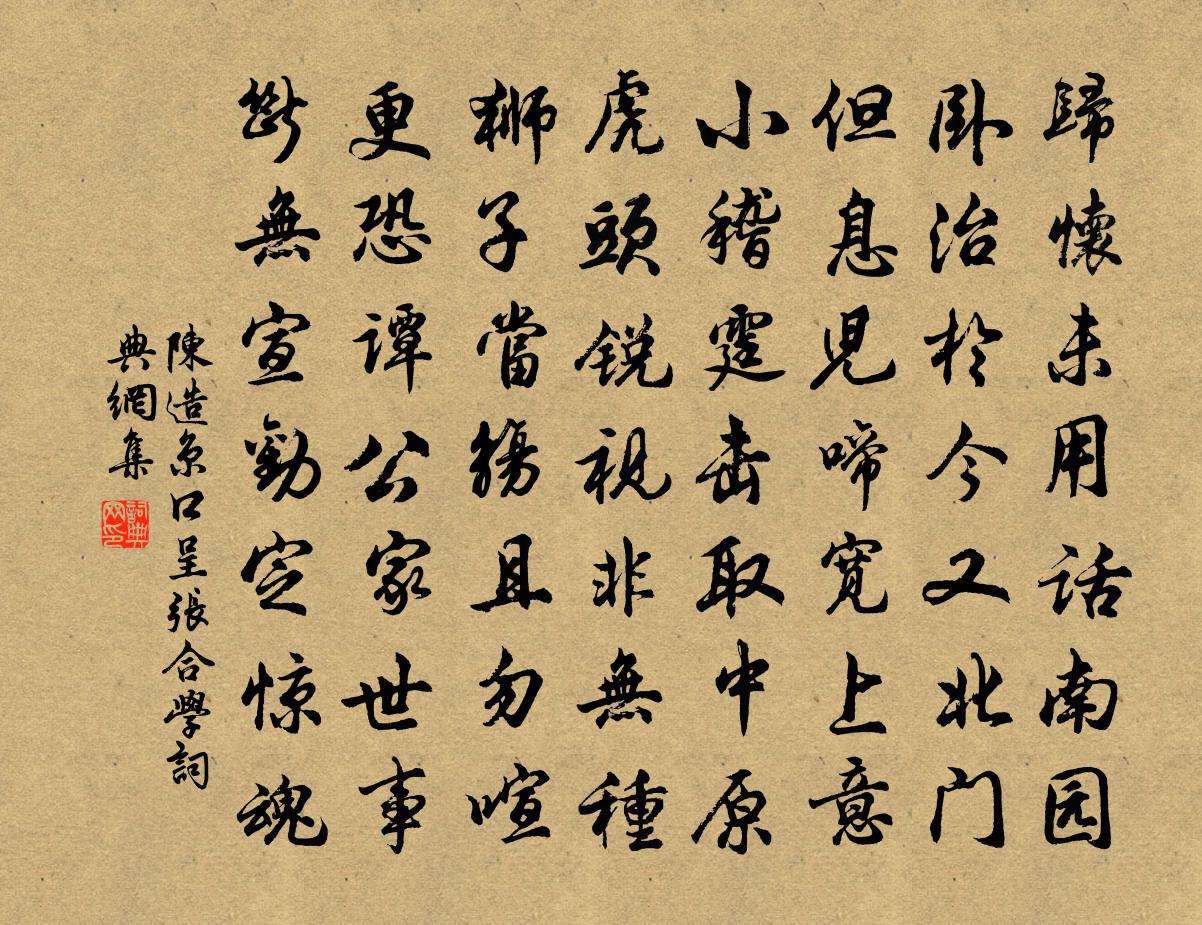 歸懷未用話南园
卧治於今又北门
但息児啼寛上意
小稽霆击取中原
虎頭锐視非無種
獅子當觴且勿喧
更恐譚公家世事
斷無宣勸定惊魂
陳造京口呈張合學詞
典網集
詞典网印